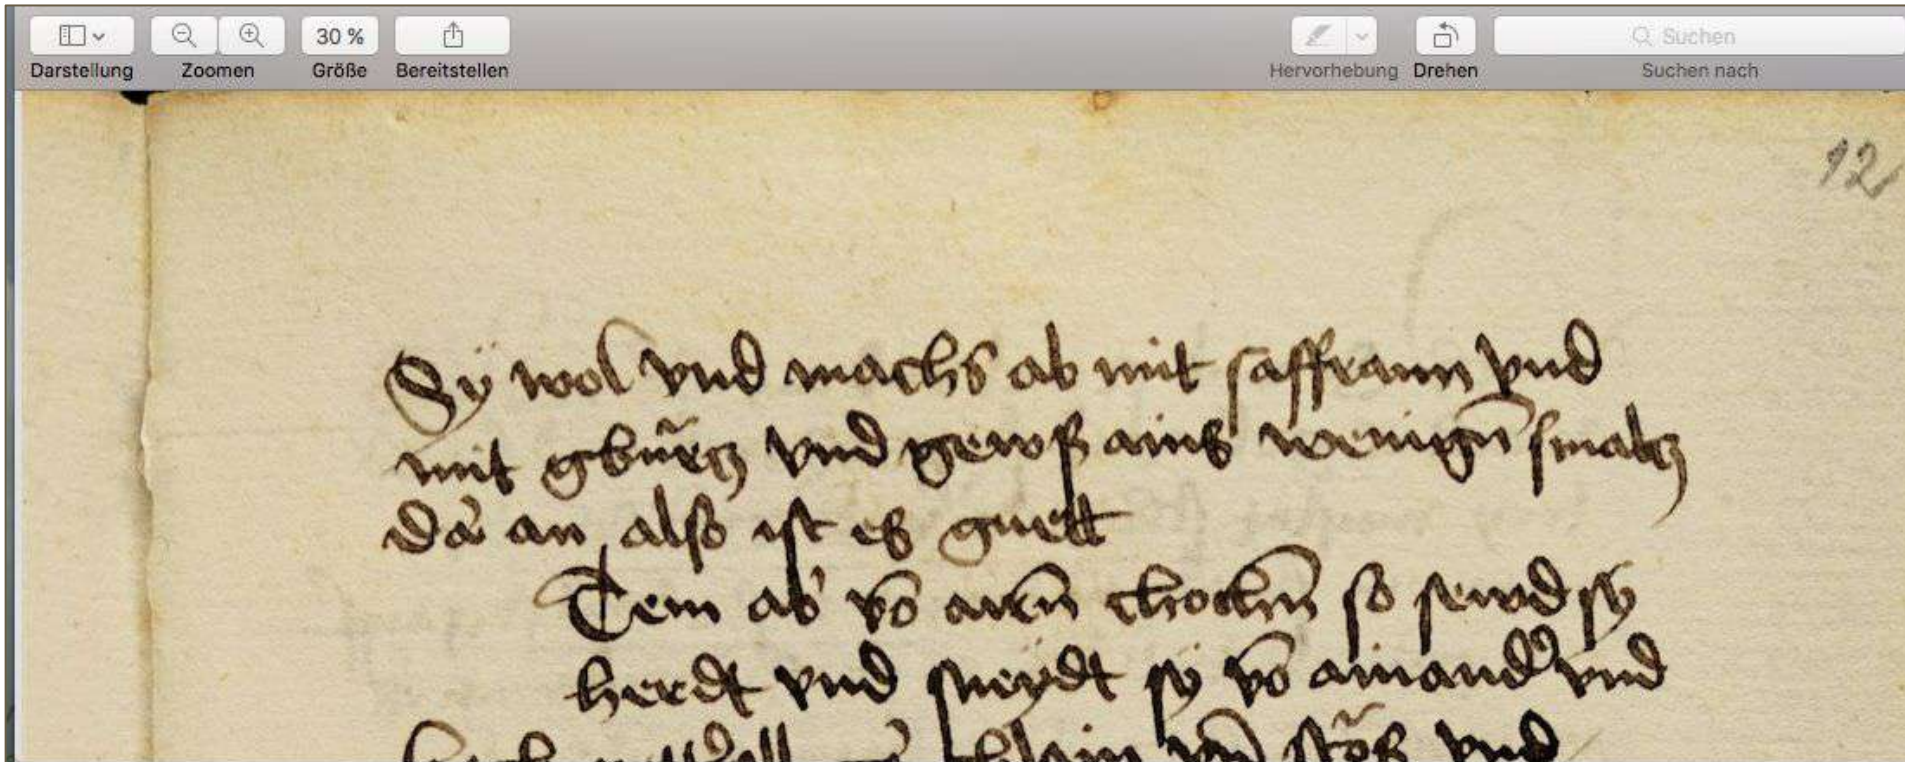 30 % Suchen
Darstellung Zoomen Größe Bereitstellen Hervorhebung Drehen Suchen nach
12
Sÿ wol vnd machs ab mit saffrann vnd
mit gbürcz vnd gewß ains wenign̄ smalcz
dar an also ist es guett
Item ab vō arn̄ so sewd sy
herdt vnd sneydt sy vō ainander vnd
vnd